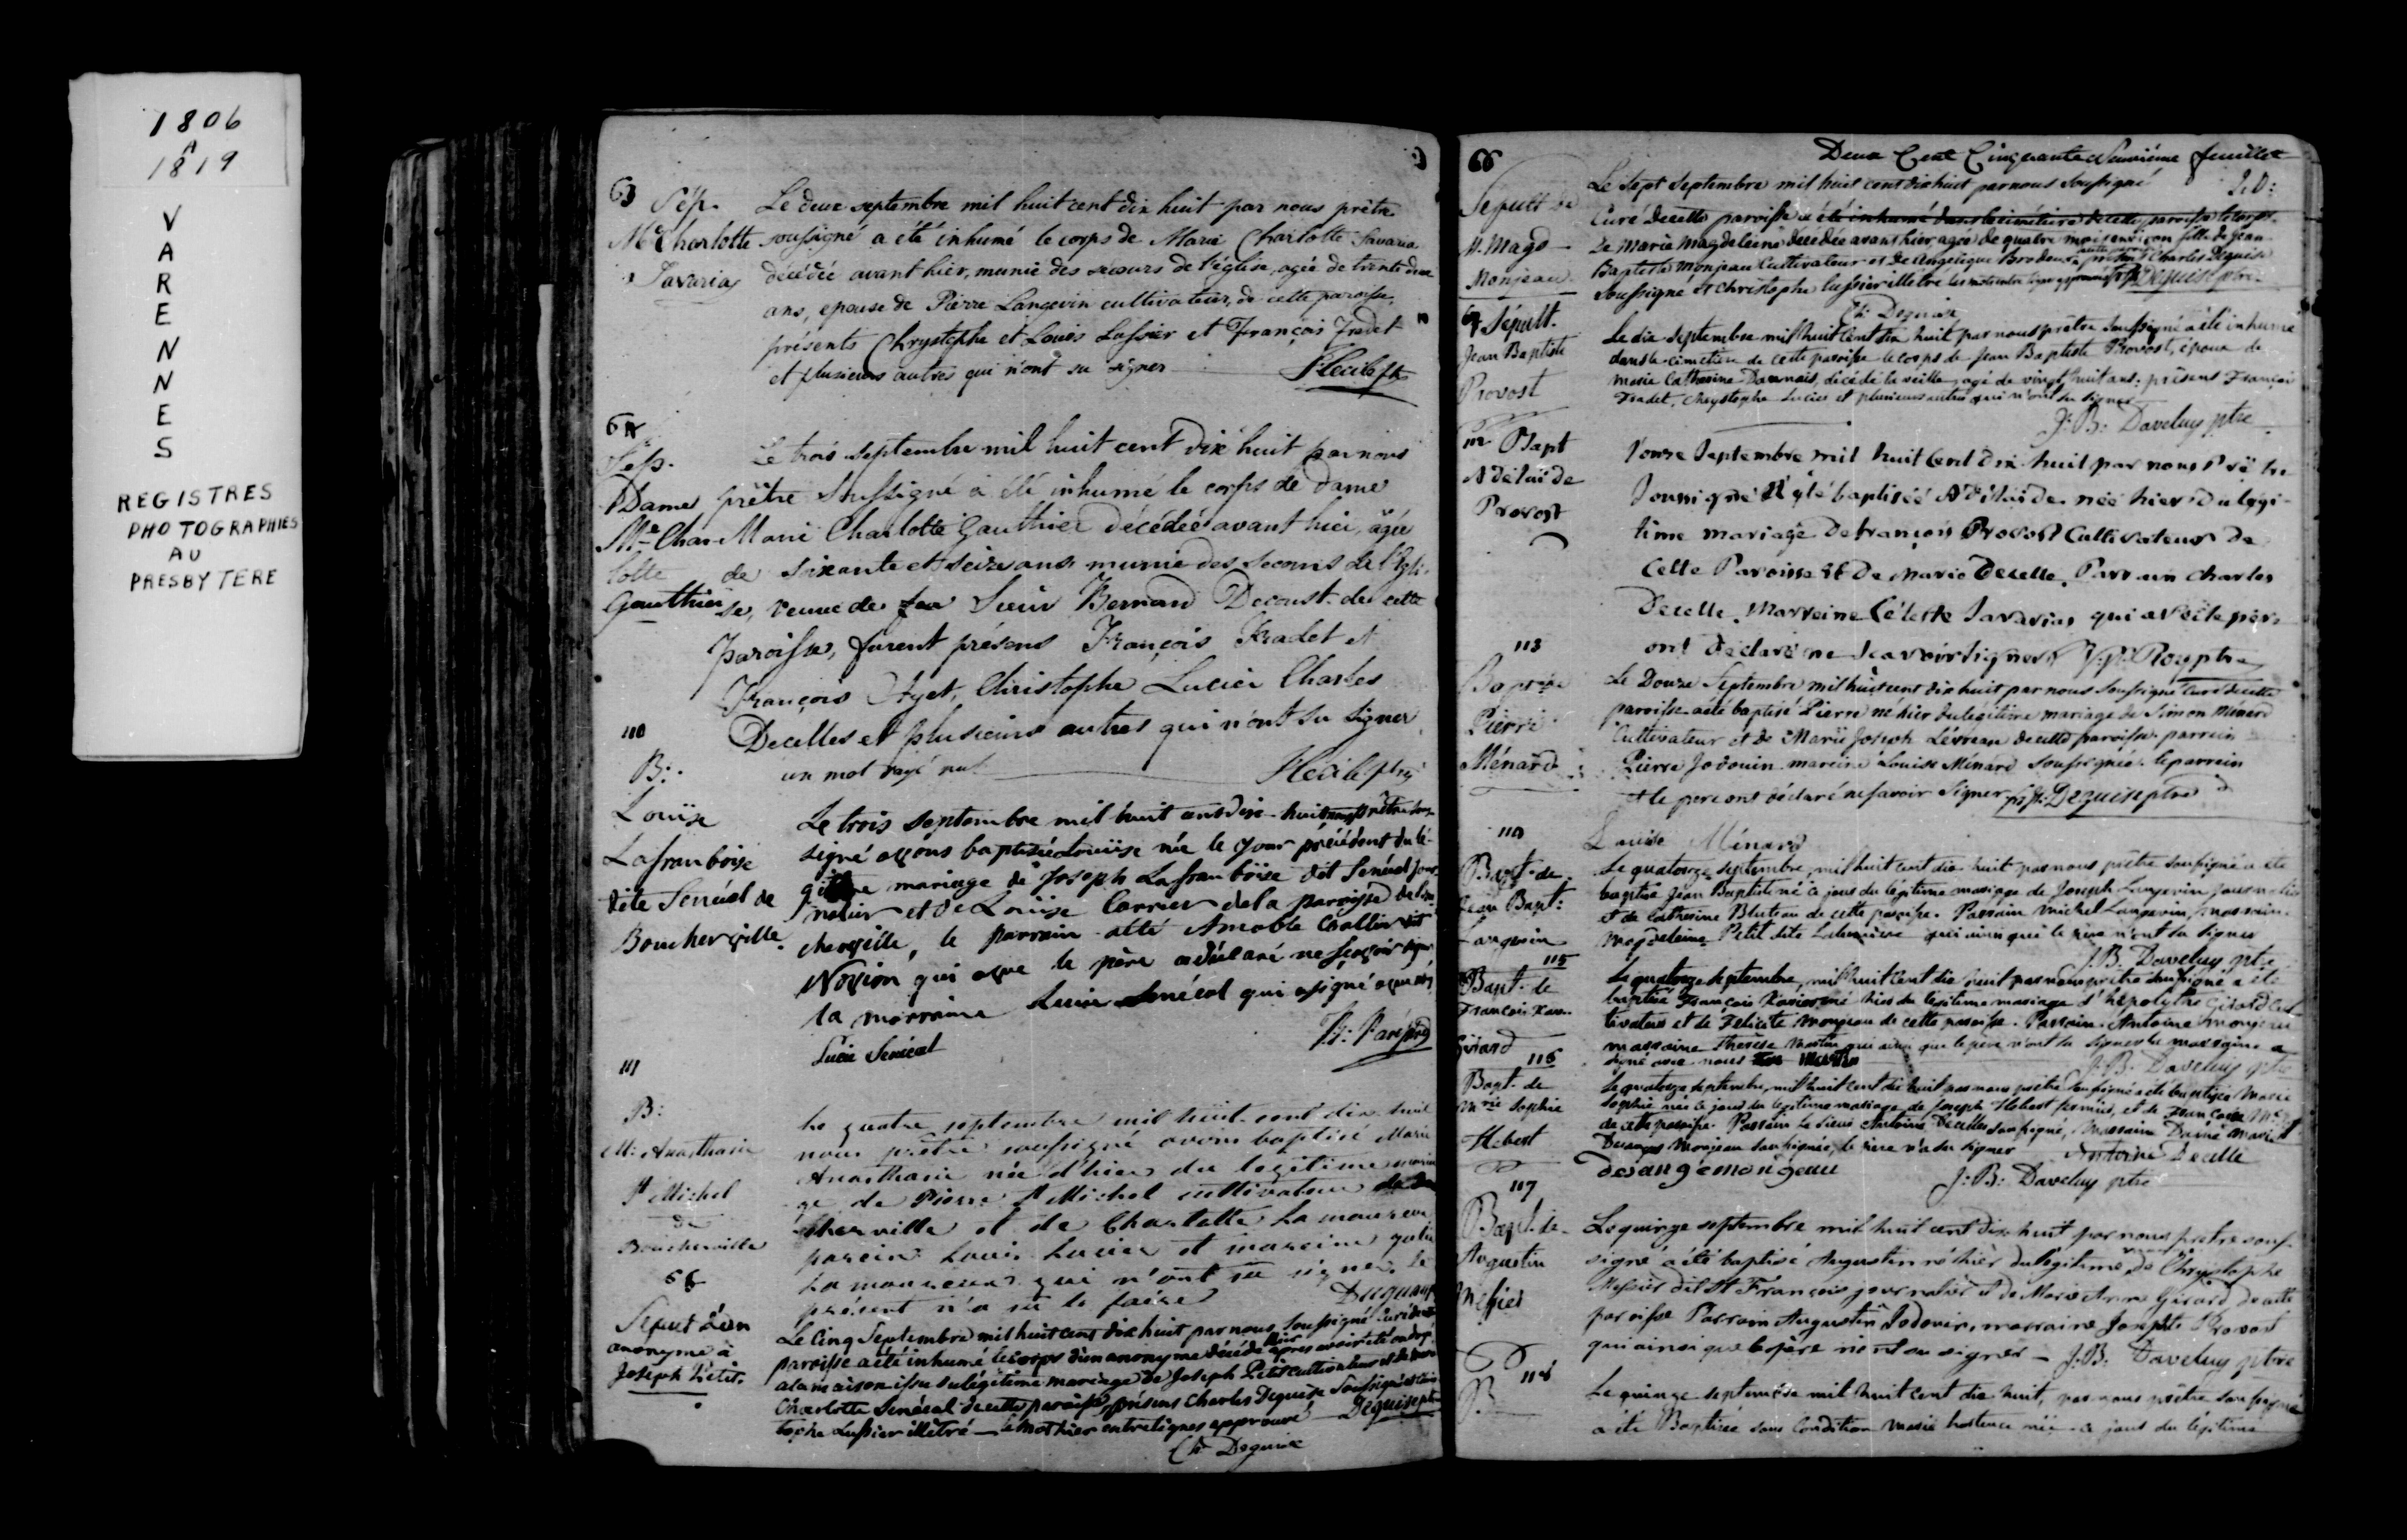 1806
A
1819
V
A
R
E
N
N
E
S
REGISTRES
PHOTOGRAPHIES
AU
PRESBYTERE
63 Sép.
Mie Charlotte
Savaria
Le deux septembre mil huit cent dix huit par nous prêtre
soussigné a été inhumé le corps de Marie Charlotte Savaria
décédée avant hier, munie des secours de l'église, agée de trente deux
ans, epouse de Pierre Langevin cultivateur, de cette paroisse,
présents Chrystophe et Louis Lussier et François Fradet
et plusieurs autres qui n'ont su signer
64
Sép.
Dame
Mie Char-
lotte
Gauthier
Le trois septembre mil huit cent dix huit par nous
prêtre soussigné a été inhumé le corps de dame
Marie Charlotte Gauthier décédée avant hier, âgée
de soixante et seize ans munie des secours de l'Egli-
se, veuve de feu Sieur Bernard Decoust de cette
paroisse, furent présens François Fradet et
François Ayet, Christophe Lucier Charles
Decelles et plusieurs autres qui n'ont su signer
un mot rayé nul
110
B:
Louise
Lafranboise
dite Senécal de
Boucherville
Le trois septembre mil huit cent dix-huit nous prêtre sous
signé avons baptisé Louise née le jour précédent du lé-
gitime mariage de Joseph Lafranboise dit Senécal jour
nalier et de Louise Carrier de la paroisse de Bou
cherville, le parrain a été Amable
qui avec le père a déclaré ne sçavoir signer
la marraine Lucie Senécal qui a signé avec nous
Lucie Senécal
111
B:
M: Anasthasie
St Michel
de
Boucherville
Le quatre septembre mil huit-cent dix-huit
nous prêtre soussigné avons baptisé Marie
Anasthasie née d'hier du legitime maria
ge de Pierre St Michel cultivateur de Bou
cherville et de Charlotte Lamoureux
parein Louis Lucier et mareine
Lamoureux qui n'ont su signer le
présent n'a su le faire
Sépult d'un
anonyme à
Joseph Petit.
Le Cinq Septembre mil huit cent dix huit par nous soussigné Curé de cette
paroisse a été inhumé le corps d'un anonyme décédé hier apres avoir été ondoyé
a la maison issu du légitime mariage de Joseph Petit cultivateur et de
Charlotte Senécal de cette paroisse, présens Charles Deguise Soussigné et Chris
tophe Lussier illétré — le mot hier entre lignes approuvé Deguise ptre
Ch Deguise
66
Deux Cent Cinquante Neuvième feuillet
J.D:
Sepult de
M. Magd
Monjeau
Le sept septembre mil huit cent dix huit par nous soussigné
Curé de cette paroisse a été inhumé dans le cimétiere de cette paroisse le corps
de Marie Magdeleine décédée avant hier agée de quatre mois environ fille de Jean
Baptiste Monjeau Cultivateur et de Angelique Brodeur présens Charles Deguise
soussigné et Christophe Lussier illétré
Ch Deguise
67 Sépult.
Jean Baptiste
Provost
Le dix septembre mil huit cent dix huit par nous prêtre soussigné a été inhumé
dans le cimetiere de cette paroisse le corps de Jean Baptiste Provost, époux de
Marie Catherine, décédé la veille, agé de vingt huit ans: présens François
Fradet, Chrystophe Lucier et plusieurs autres qui n'ont su signer
J: B: Daveluy ptre
112 Bapt
Adélaïde
Provost
L'onze Septembre mil huit cent dix-huit par nous Prêtre
soussigné a été baptisée Adélaïde née hier du légi-
time mariage de François Provost Cultivateur de
Cette Paroisse et de Marie Decelle. Parrain Charles
Decelle. Marreine Céleste Savarias qui avec le père
ont déclaré ne sçavoir signer Roy ptre
113
Bapt de
Pierre
Ménard
Le Douze Septembre mil huit cent dix huit par nous soussigné Curé de cette
paroisse a été baptisé Pierre né hier du légitime mariage de Simon Ménard
Cultivateur et de Marie Joseph Léveau de cette paroisse parrain
Pierre Jodouin mareine Louise Ménard soussignée le parrain
et le pere ont déclaré ne savoir signer Deguise ptre
Louise Ménard
114
Bapt. de
Jean Bapt:
Langevin
Le quatorze septembre, mil huit cent dix huit par nous prêtre soussigné a été
baptisé Jean Baptiste né ce jour du légitime mariage de Joseph Langevin journalier
et de Catherine Bluteau de cette paroisse. Parrain Michel Langevin, marraine
Magdeleine Petit dite Lalumière qui ainsi que le père n'ont su signer
J.B. Daveluy ptre
115
Bapt. de
François Xav.
Girard
Le quatorze septembre, mil huit cent dix huit par nous prêtre soussigné a été
baptisé François Xavier né hier du légitime mariage d'Hypolythe Girard Cul
tivateur et de Felicité Monjeau de cette paroisse. Parrain Antoine Monjeau
marraine Therese Martin qui ainsi que le pere n'ont su signer la marraine a
signé avec nous
J.B. Daveluy ptre
116
Bapt. de
Mrie Sophie
Hebert
Le quatorze septembre, mil huit cent dix huit par nous prêtre soussigné a été baptisée Marie
Sophie née ce jour du légitime mariage de Joseph Hebert fermier, et de Françoise
de cette paroisse. Parrain Le Sieur Antoine Decelles soussigné, Marraine Dame Marie
Desanges Monjeau soussignée, le père n'a su signer Antoine Decelle
desange mongeau
J: B: Daveluy ptre
117
Bapt. de
Augustin
Messier
Le quinze septembre mil huit cent dix huit par nous prêtre sous
signé a été baptisé Augustin né hier du légitime de Chrystophe
Messier dit St François journalier et de Marie Anne Girard de cette
paroisse Parrain Augustin Jodouin, marraine Josephte Provost
qui ainsi que le père n'ont su signer — J.B: Daveluy ptre
118
B
Le quinze septembre mil huit cent dix huit, par nous prêtre soussigné
a été Baptisée sous Condition Marie hortence née ce jour du légitime